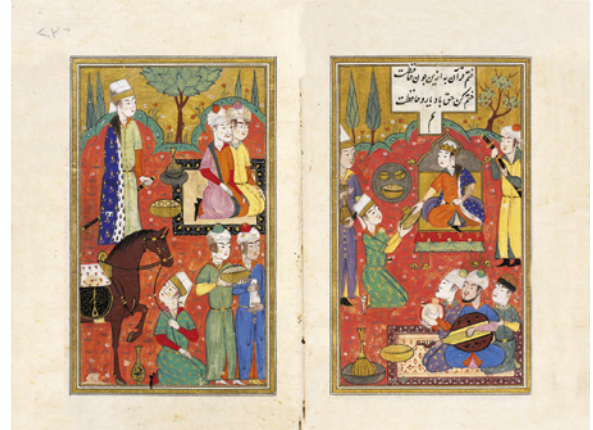 ختم قرآن به ازین چون
ختم کن حق باد یار و حافظت
م